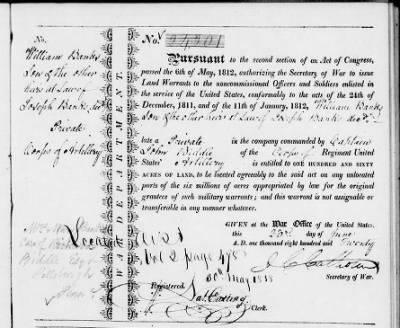 No.
William Banks
Son & the other
heirs at Law of
Joseph Banks decd
Private
Corps of Artillery
WAR DEPARTMENT.
No. 24301
Pursuant to the second section of an Act of Congress,
passed the 6th of May, 1812, authorizing the Secretary of War to issue
Land Warrants to the noncommissioned Officers and Soldiers enlisted
in the service of the United States, conformably to the acts of the 24th of
December, 1811, and of the 11th of January, 1812, William Banks
Son & the other heirs at Law of Joseph Banks decd
late a Private in the company commanded by Captain
John Biddle of the Corps of Regiment United
States' Artillery is entitled to ONE HUNDRED AND SIXTY
ACRES OF LAND, to be located agreeably to the said act on any unlocated
parts of the six millions of acres appropriated by law for the original
grantees of such military warrants; and this warrant is not assignable
or transferable in any manner whatever.
GIVEN at the War Office of the United States,
this 23rd day of June
A. D. one thousand eight hundred and Twenty
J. C. Calhoun
Secretary of War.
Biddle Esqr
Pittsburgh
Vol 2 page 478
30th May
Registered.
Clerk.